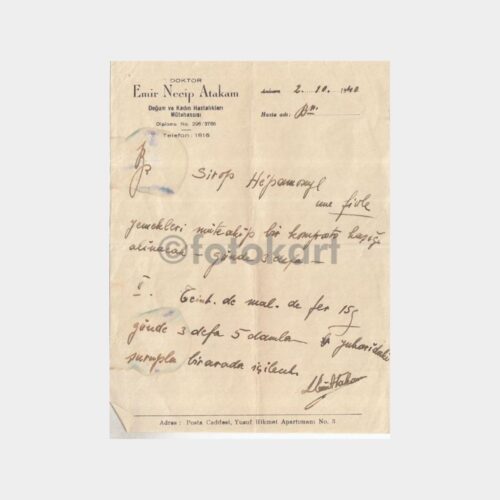 DOKTOR
Emir Necip Atakam
Doğum ve Kadın Hastalıkları
Mütehassısı
Diploma No. 295/3765
Telefon: 1616
Ankara 2. 10. 1940
Hasta adı: Bn.
Sirop Hépamoxyl
une fiole
yemekleri müteakip bir komposto kaşığı
alınacak - günde 3 defa -
©fotokart
II. Teint. de mal. de fer 15g
günde 3 defa 5 damla yukarıdaki
şurupla bir arada içilecek
Adres: Posta Caddesi, Yusuf Hikmet Apartımanı No. 3